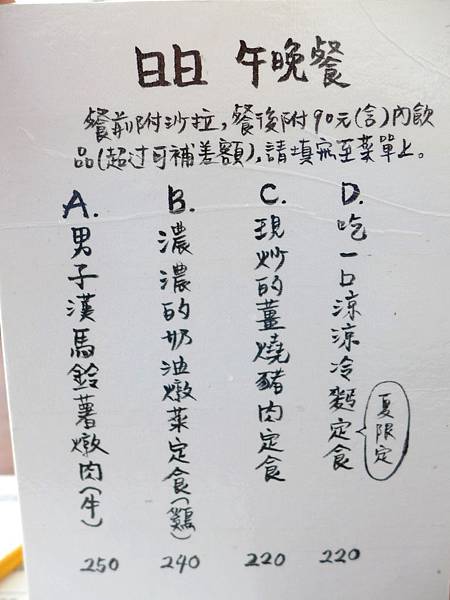 日日 午晚餐
餐前附沙拉,餐後附90元(含)內飲
品(超过可補差額),請填寫至菜單上。
A.
男子漢馬鈴薯燉肉(牛)
250
B.
濃濃的奶油燉菜定食(鷄)
240
C.
現炒的薑燒豬肉定食
220
D.
吃一口涼涼冷麵定食
夏限定
220